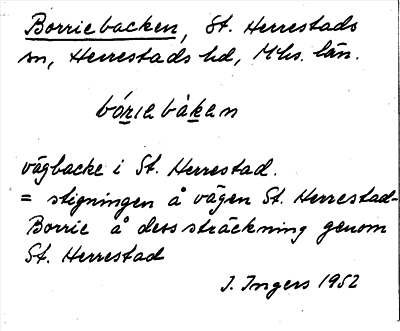 Borriebacken, St. Herrestads
sn, Herrestads hd, Mhs. län.
bórıebàken
vägbacke i St. Herrestad.
= stigningen å vägen St. Herrestad-
Borrie å dess sträckning genom
St. Herrestad
I. Ingers 1952